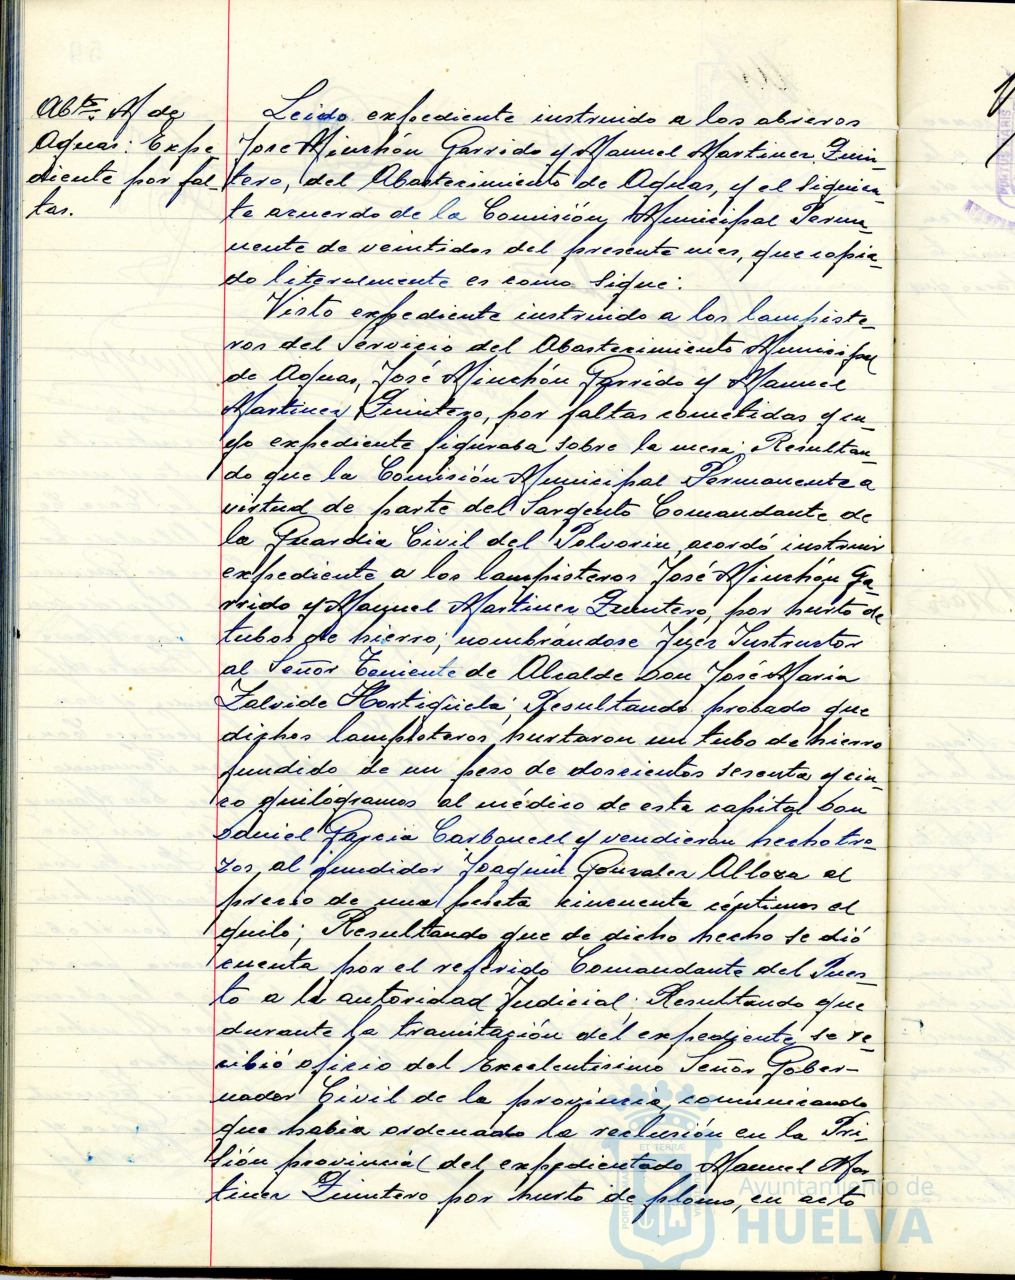 Abto. M. de
Aguas: Expe
diente por fal-
tas.
Leido expediente instruido a los obreros
José Minchón Garrido y Manuel Martinez Quin-
tero, del Abastecimiento de Aguas, y el siguien-
te acuerdo de la Comisión Municipal Perma-
nente de veintidos del presente mes, que copia-
do literalmente es como sigue:
Visto expediente instruido a los lampiste-
ros del Servicio del Abastecimiento Municipal
de Aguas, José Minchón Garrido y Manuel
Martinez Quintero, por faltas cometidas y cu-
yo expediente figuraba sobre la mesa; Resultan-
do que la Comisión Municipal Permanente a
virtud de parte del Sargento Comandante de
la Guardia Civil del Polvorin, acordó instruir
expediente a los lampisteros José Minchón Ga-
rrido y Manuel Martinez Quintero, por hurto de
tubos de hierro, nombrándose Juez Instructor
al Señor Teniente de Alcalde Don José Maria
Zalvide Hortigüela; Resultando probado que
dichos lampisteros hurtaron un tubo de hierro
fundido de un peso de doscientos sesenta y cin-
co quilógramos al médico de esta capital Don
Daniel Garcia Carbonell y vendieron hecho tro-
zos al fundidor Joaquin Gonzalez Alloza al
precio de una peseta cincuenta céntimos el
quilo; Resultando que de dicho hecho se dió
cuenta por el referido Comandante del Pues-
to a la autoridad Judicial; Resultando que
durante la tramitación del expediente se re-
cibió oficio del Excelentisimo Señor Gober-
nador Civil de la provincia, comunicando
que habia ordenado la reclusión en la Pri-
sión provincial del expedientado Manuel Mar-
tinez Quintero por hurto de plomo, en acto
Ayuntamiento de
HUELVA